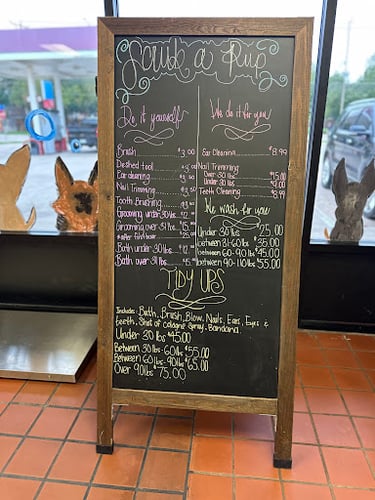 Scrub a Pup
Do it yourself
Brush
Deshed tool
Ear cleaning
Nail Trimming
Tooth Brushing
Grooming under 30 lbs
Grooming over 31 lbs
Bath under 30 lbs
Bath over 31 lbs
We do it for you
Ear Cleaning $8.99
Nail Trimming
Over 30 lbs $15.00
Under 30 lbs
Teeth Cleaning $8.99
We wash for you
Under 30 lbs $25.00
between 31-60 lbs $35.00
between 60-90 lbs $45.00
between 90-110 lbs $55.00
TIDY UPS
Includes: Bath, Brush, Blow, Nails, Ears, Eyes &
teeth, Shot of cologne Spray, Bandana.
Under 30 lbs $45.00
Between 30 lbs-60 lbs $55.00
Between 60 lbs-90 lbs $65.00
Over 90 lbs $75.00